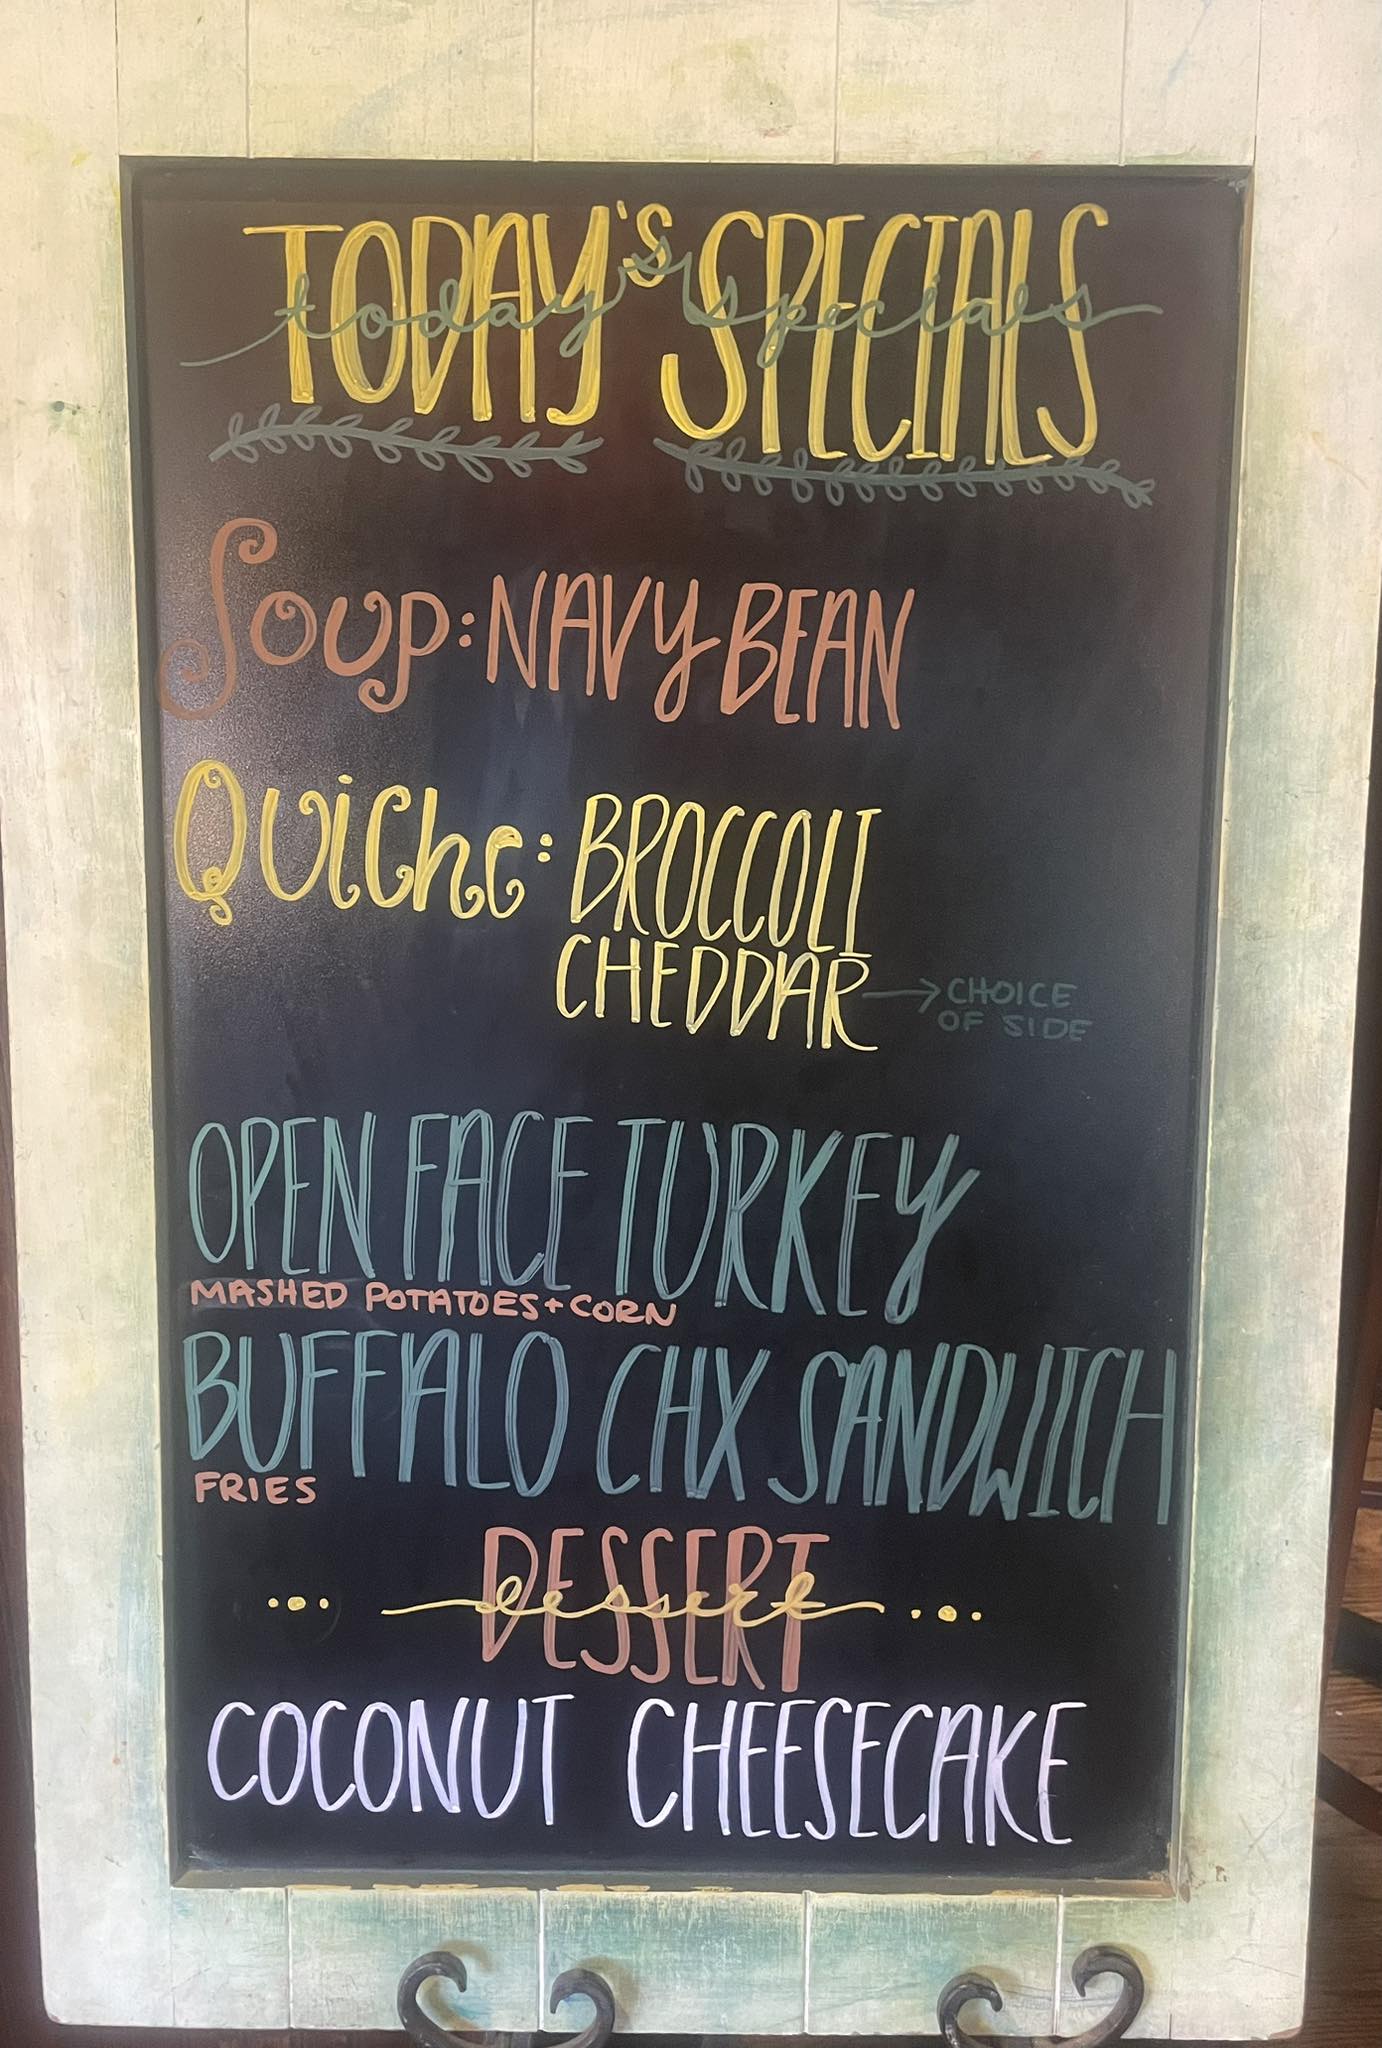 TODAY'S SPECIALS
today's specials
Soup: NAVY BEAN
QuiChe: BROCCOLI
CHEDDAR → CHOICE
OF SIDE
OPEN FACE TURKEY
MASHED POTATOES + CORN
BUFFALO CHX SANDWICH
FRIES
DESSERT
dessert
COCONUT CHEESECAKE